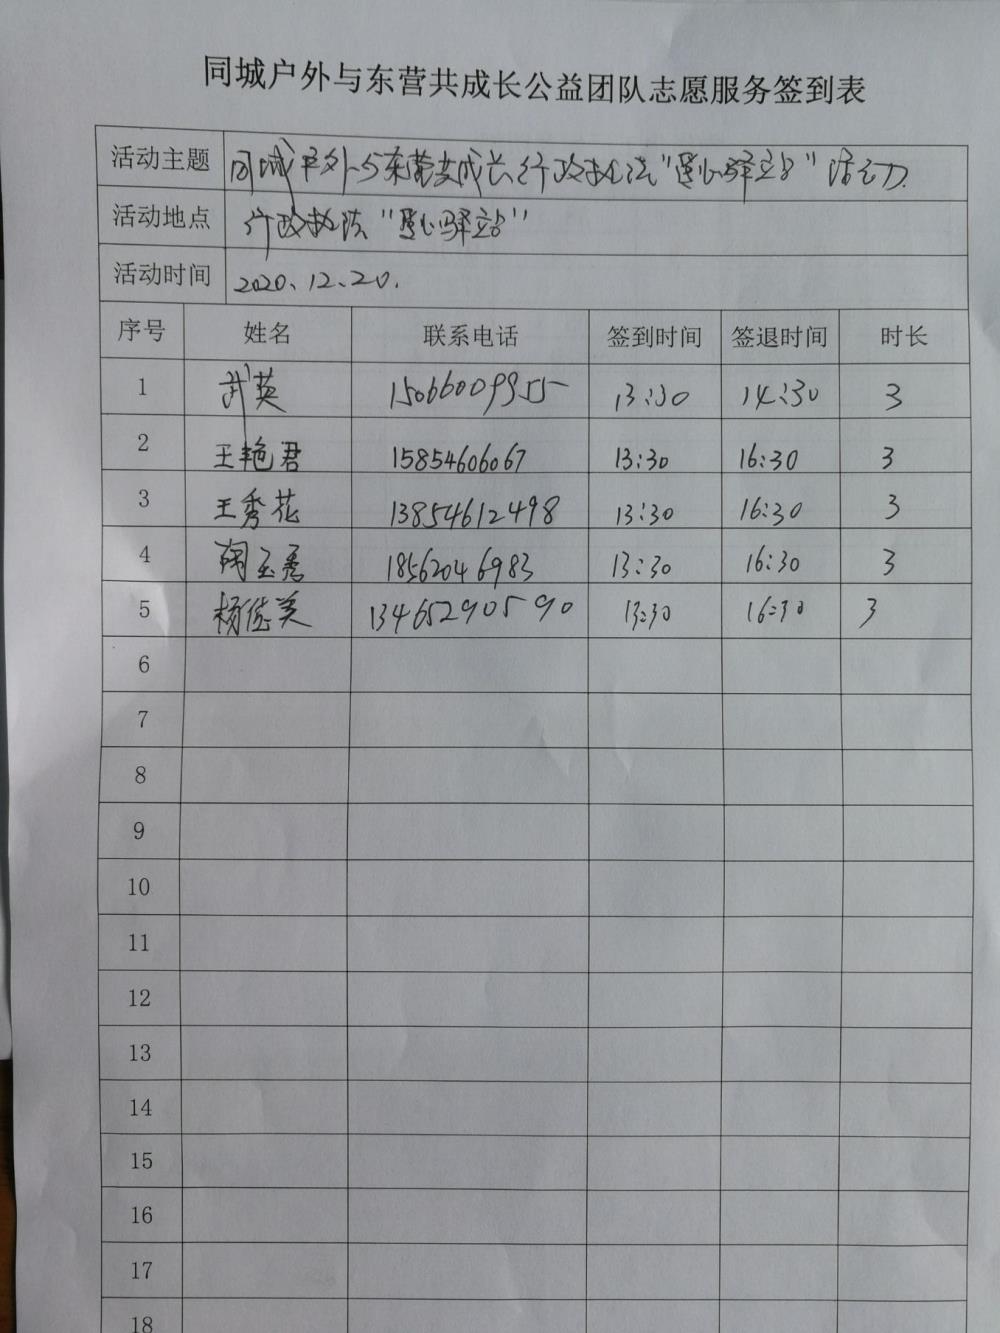 同城户外与东营共成长公益团队志愿服务签到表
活动主题 同城户外与东营共成长行政执法“暖心驿站”活动.
活动地点 行政执法“暖心驿站”
活动时间 2020、12、20.
序号 姓名 联系电话 签到时间 签退时间 时长
1 武英 15066009955 13:30 14:30 3
2 王艳君 15854606067 13:30 16:30 3
3 王秀花 13854612498 13:30 16:30 3
4 玉秀 18562046983 13:30 16:30 3
5 杨佳美 13465290590 13:30 16:30 3
6
7
8
9
10
11
12
13
14
15
16
17
18